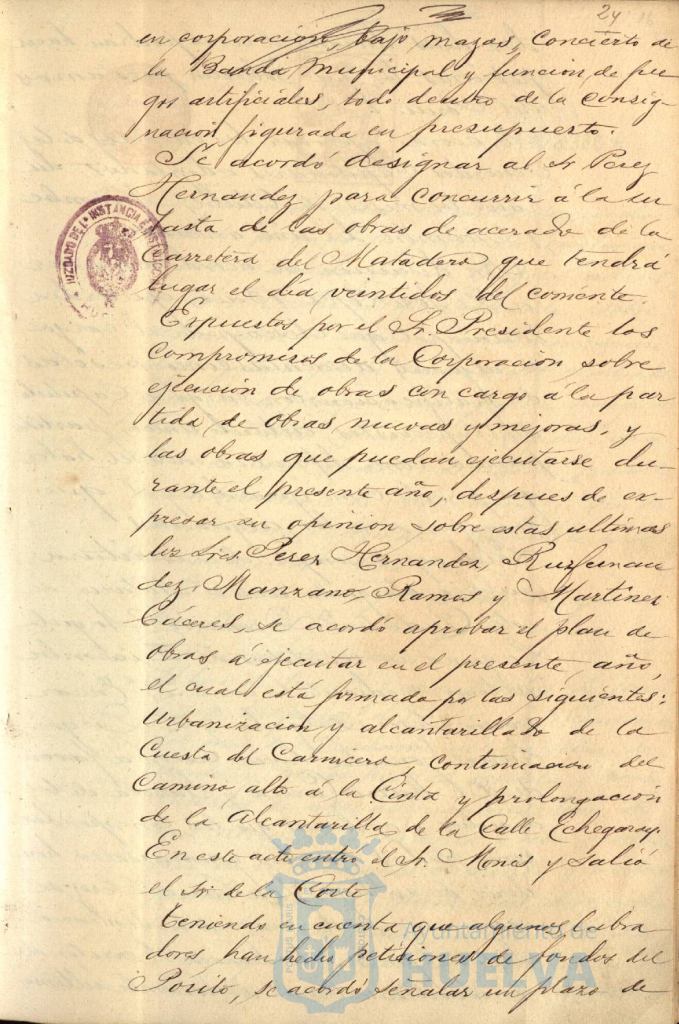 24 16
en corporación, bajo mazas, concierto de
la Banda Municipal y función de fue
gos artificiales, todo dentro de la consig-
nación figurada en presupuesto.
Se acordó designar al Sr Perez
Hernandez para concurrir á la su
basta de las obras de acerado de la
Carretera del Matadero que tendrá
lugar el día veintidos del corriente.
Expuestos por el Sr. Presidente los
compromisos de la Corporación, sobre
ejecución de obras con cargo á la par
tida de obras nuevas y mejoras, y
las obras que puedan ejecutarse du-
rante el presente año, despues de ex-
presar su opinion sobre estas ultimas
los Sres Perez Hernandez, Ruifernan
dez, Manzano, Ramos y Martinez
Cáceres, se acordó aprobar el plan de
obras á ejecutar en el presente año,
el cual está formado por las siguientes:
Urbanizacion y alcantarillado de la
Cuesta del Carnicero, continuacion del
Camino alto á la Cinta y prolongación
de la Alcantarilla de la Calle Echegaray.
En este acto entró el Sr. Monís y salió
el Sr. de la Corte
Teniendo en cuenta que algunos labra
dores han hecho peticiones de fondos del
Pósito, se acordó señalar un plazo de
JUZGADO DE 1ª INSTANCIA E INSTRUCCION
Ayuntamiento de
HUELVA